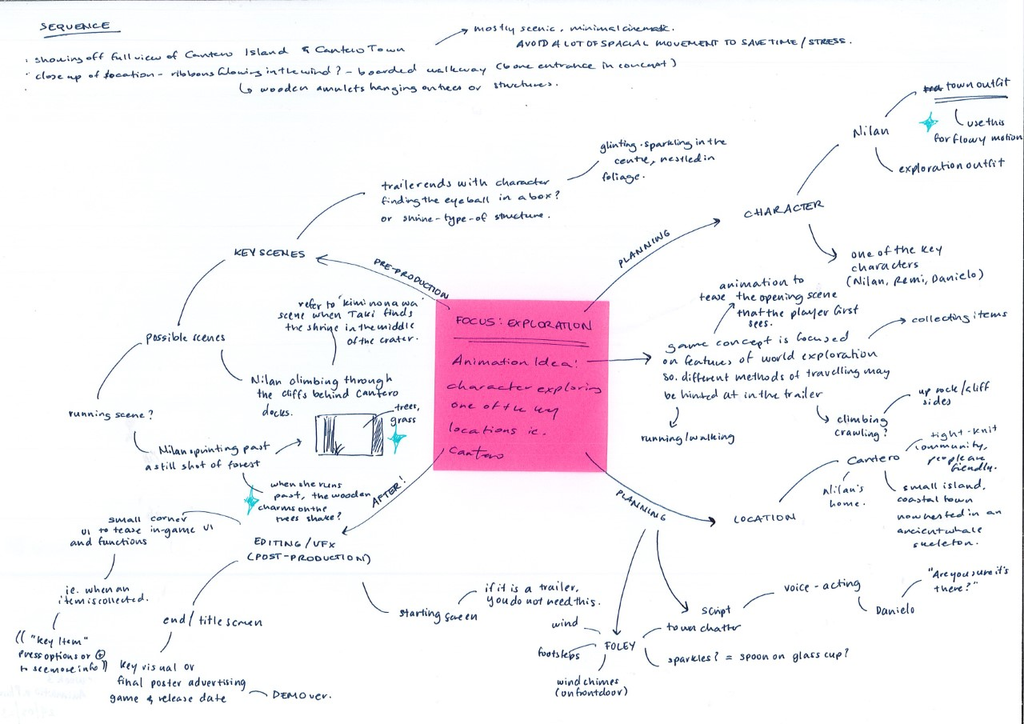 SEQUENCE
· showing off full view of Cantero Island & Cantero Town
→ mostly scenic, minimal cinematic.
AVOID A LOT OF SPACIAL MOVEMENT TO SAVE TIME / STRESS.
· close up of location - ribbons blowing in the wind? - boarded walkway (bone entrance in concept)
↳ wooden amulets hanging on trees or structures.
FOCUS: EXPLORATION
Animation Idea:
character exploring
one of the key
locations ie.
Cantero
PRE-PRODUCTION
KEY SCENES
trailer ends with character
finding the eyeball in a box?
or shrine-type-of structure.
glinting-sparkling in the
centre, nestled in
foliage.
possible scenes
refer to 'kimi no na wa'
scene when Taki finds
the shrine in the middle
of the crater.
Nilan climbing through
the cliffs behind Cantero
docks.
running scene?
Nilan sprinting past
a still shot of forest
trees,
grass
when she runs
past, the wooden
charms on the
trees shake?
PLANNING
CHARACTER
Nilan
town outfit
use this
for flowy motion
exploration outfit
one of the key
characters
(Nilan, Remi, Danielo)
animation to
tease the opening scene
that the player first
sees.
game concept is focused
on features of world exploration
so. different methods of travelling may
be hinted at in the trailer
collecting items
running/walking
climbing
crawling?
up rock/cliff
sides
PLANNING
LOCATION
Cantero
tight-knit
community,
people are
friendly.
Nilan's
home.
small island,
coastal town
now nested in an
ancient whale
skeleton.
script
voice-acting
Danielo
"Are you sure it's
there?"
FOLEY
wind
footsteps
wind chimes
(on front door)
town chatter
sparkles? = spoon on glass cup?
AFTER!
EDITING / VFX
(POST-PRODUCTION)
small corner
UI to tease in-game UI
and functions
ie. when an
item is collected.
(( "Key Item"
Press options or
to see more info ))
end / title screen
Key visual or
final poster advertising
game & release date
DEMO over.
starting screen
if it is a trailer,
you do not need this.